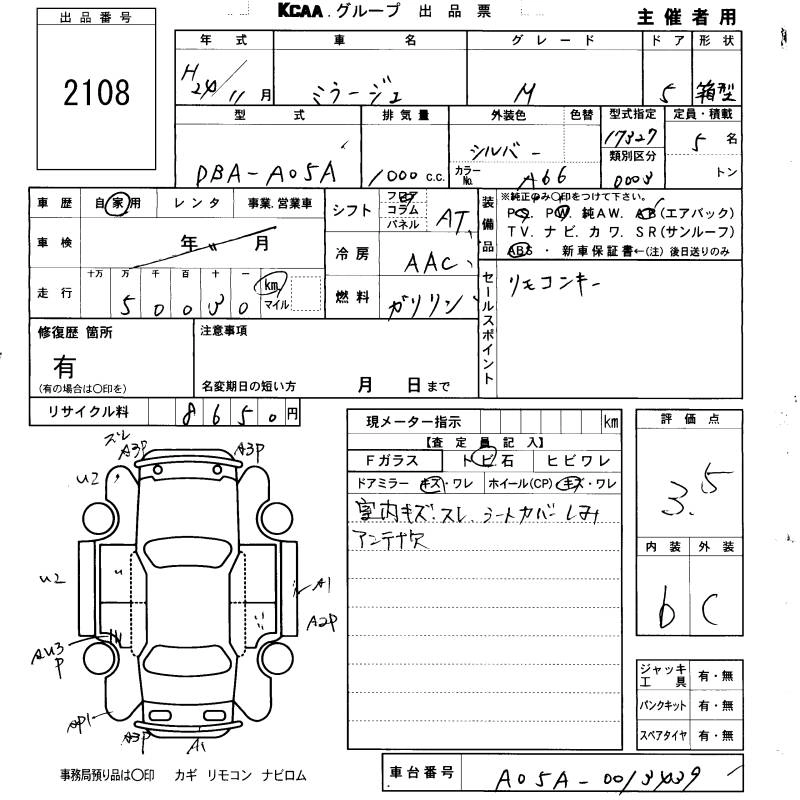 KCAA.グループ 出品票
主催者用
出品番号
2108
年式 車名 グレード ドア 形状
H24/11月 ミラージュ M 5 箱型
型式 排気量 外装色 色替 型式指定 定員・積載
DBA-A05A 1000 c.c. シルバー 17327 5名
カラーNo. A66 類別区分 0003 トン
車歴 自家用 レンタ 事業.営業車
車検 年 月
走行 十万 万 千 百 十 一
50030 km. マイル
シフト フロア コラム パネル AT
冷房 AAC
燃料 ガソリン
装備品 ※純正のみ〇印をつけて下さい。
PS. PW. 純AW. AB(エアバック)
TV. ナビ. カワ. SR(サンルーフ)
ABS ・ 新車保証書←(注) 後日送りのみ
セールスポイント
リモコンキー
修復歴 箇所
有
(有の場合は〇印を)
注意事項
名変期日の短い方 月 日まで
リサイクル料 8650円
現メーター指示 km
【査定員記入】
Fガラス トビ石 ヒビワレ
ドアミラー キズ・ワレ ホイール(CP) キズ・ワレ
室内キズ.スレ.シートカバーしみ
アンテナ欠
評価点
3.5
内装 外装
b C
ジャッキ工具 有・無
パンクキット 有・無
スペアタイヤ 有・無
スレ
A3P A3P
U2
U2 U
A1
A2P
AU3
P
AP1
A3P A1
事務局預り品は〇印 カギ リモコン ナビロム
車台番号 A05A-0013439